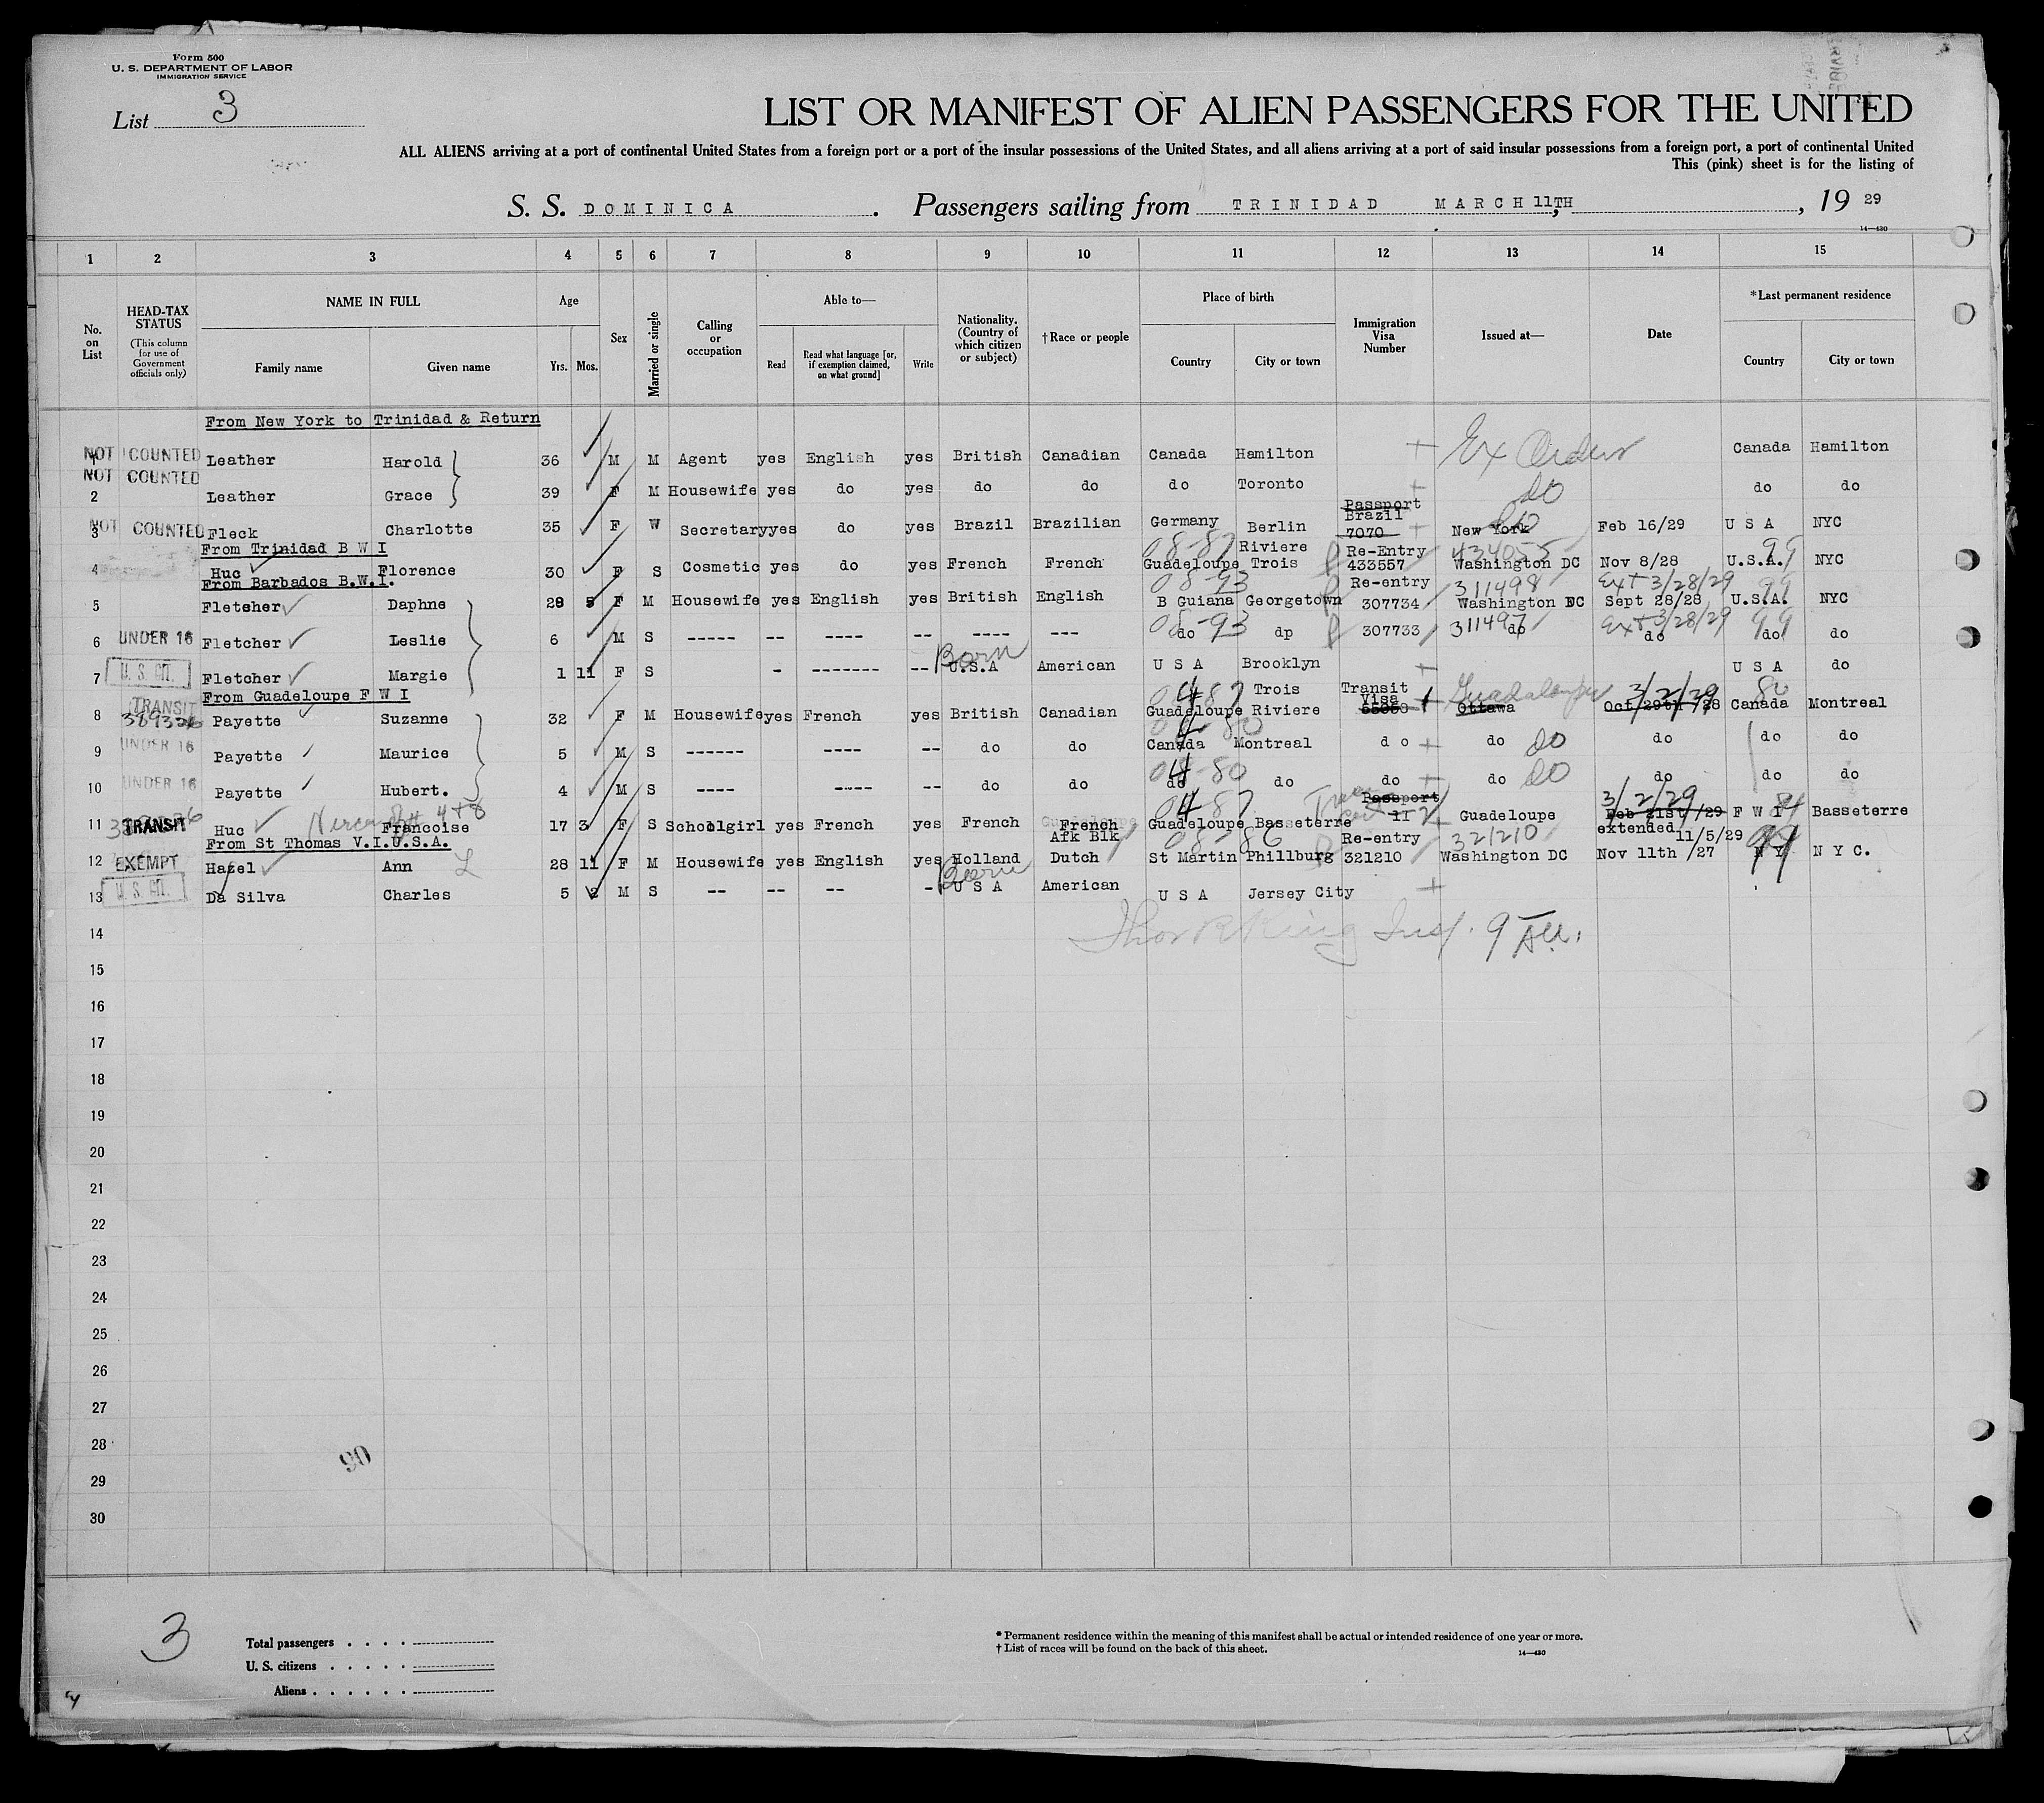 Form 500
U. S. DEPARTMENT OF LABOR
IMMIGRATION SERVICE
List 3
LIST OR MANIFEST OF ALIEN PASSENGERS FOR THE UNITED
ALL ALIENS arriving at a port of continental United States from a foreign port or a port of the insular possessions of the United States, and all aliens arriving at a port of said insular possessions from a foreign port, a port of continental United
This (pink) sheet is for the listing of
S. S. DOMINICA. Passengers sailing from TRINIDAD MARCH 11TH, 19 29
14—430
1 2 3 4 5 6 7 8 9 10 11 12 13 14 15
No. on List
HEAD-TAX STATUS (This column for use of Government officials only)
NAME IN FULL Family name Given name
Age Yrs. Mos.
Sex
Married or single
Calling or occupation
Able to— Read Read what language [or, if exemption claimed, on what ground] Write
Nationality. (Country of which citizen or subject)
†Race or people
Place of birth Country City or town
Immigration Visa Number
Issued at—
Date
*Last permanent residence Country City or town
From New York to Trinidad & Return
1 NOT COUNTED Leather Harold 36 M M Agent yes English yes British Canadian Canada Hamilton Ex Order Canada Hamilton
2 NOT COUNTED Leather Grace 39 F M Housewife yes do yes do do do Toronto do do do
3 NOT COUNTED Fleck Charlotte 35 F W Secretary yes do yes Brazil Brazilian Germany Berlin Passport Brazil 7070 New York do Feb 16/29 U S A NYC
From Trinidad B W I
4 Huc Florence 30 F S Cosmetic yes do yes French French 08-87 Guadeloupe Riviere Trois Re-Entry 433557 434055 Washington DC Nov 8/28 U.S.A. 99 NYC
From Barbados B.W.I.
5 Fletcher Daphne 28 5 F M Housewife yes English yes British English 08-93 B Guiana Georgetown Re-entry 307734 311498 Washington DC Ext 3/28/29 Sept 28/28 99 U.S.A. NYC
6 UNDER 16 Fletcher Leslie 6 M S ----- -- ---- -- ---- --- 08-93 do dp 307733 311497 do Ext 3/28/29 do 99 do do
7 U. S. CIT. Fletcher Margie 1 11 F S - ------- -- Born U.S.A American U S A Brooklyn U S A do
From Guadeloupe F W I
8 TRANSIT 389326 Payette Suzanne 32 F M Housewife yes French yes British Canadian 04-87 Guadeloupe Trois Riviere Transit Visa Guadaloupe Ottawa 3/2/29 Oct 29th /28 80 Canada Montreal
9 UNDER 16 Payette Maurice 5 M S ------ ---- -- do do 04-80 Canada Montreal do do do do do do
10 UNDER 16 Payette Hubert. 4 M S ---- ---- -- do do 04-80 do do do do do do do do
11 TRANSIT Huc Francoise 17 3 F S Schoolgirl yes French yes French French Afk Blk 04-87 Guadeloupe Basseterre Passport 11 Guadeloupe 3/2/29 Feb 21st /29 F W I 84 Basseterre
From St Thomas V.I.U.S.A.
12 EXEMPT Hazel Ann 28 11 F M Housewife yes English yes Holland Dutch 08-86 St Martin Phillburg Re-entry 321210 321210 Washington DC extended 11/5/29 Nov 11th /27 N Y N Y C.
13 U. S. CIT. Da Silva Charles 5 2 M S -- -- -- - Born U S A American U S A Jersey City
14
15
16
17
18
19
20
21
22
23
24
25
26
27
28
29
30
90
3
Total passengers
U. S. citizens
Aliens
* Permanent residence within the meaning of this manifest shall be actual or intended residence of one year or more.
† List of races will be found on the back of this sheet.
14—430